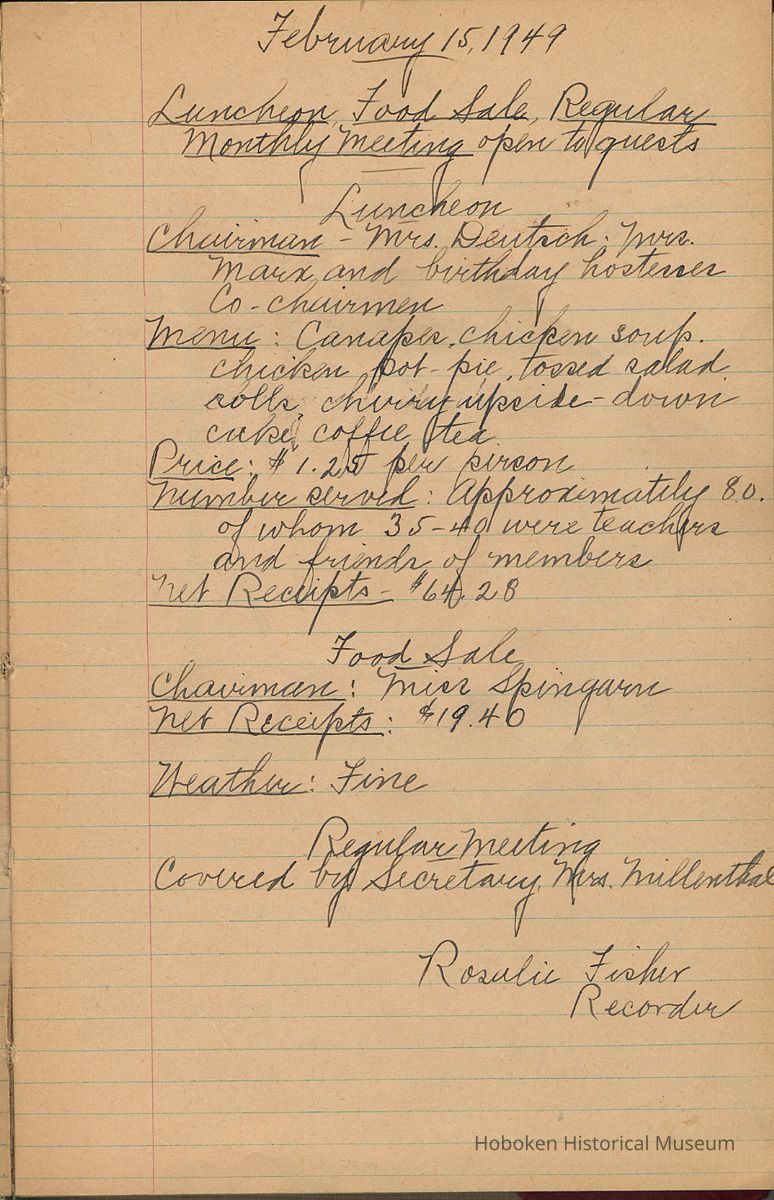 February 15, 1949
Luncheon, Food Sale, Regular
Monthly Meeting open to guests
Luncheon
Chairman - Mrs. Deutsch. Mrs.
Marx and birthday hostesses
Co-chairmen
Menu: Canapes, chicken soup.
chicken pot-pie, tossed salad
rolls, cherry upside-down
cake, coffee, tea
Price: $1.25 per person
Number served: Approximately 80.
of whom 35-40 were teachers
and friends of members
Net Receipts - $64.28
Food Sale
Chairman: Miss Spingarn
Net Receipts: $19.40
Weather: Fine
Regular Meeting
Covered by Secretary, Mrs. Millenthal
Rosalie Fisher
Recorder
Hoboken Historical Museum